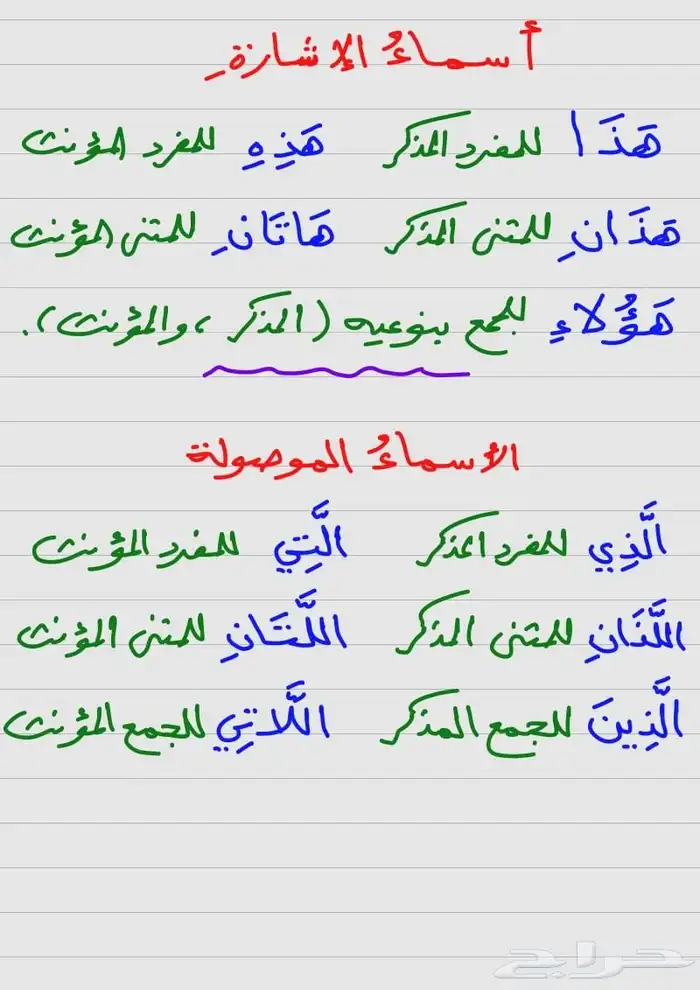 أسماءُ الإشارةِ
هَذَا للمفرد المذكر هَذِهِ للمفرد المؤنث
هَذَانِ للمثنى المذكر هَاتَانِ للمثنى المؤنث
هَؤُلاءِ للجمع بنوعيه (المذكر ، والمؤنث).
الأسماءُ الموصولة
الَّذِي للمفرد المذكر الَّتِي للمفرد المؤنث
اللَّذَانِ للمثنى المذكر اللَّتَانِ للمثنى المؤنث
الَّذِينَ للجمع المذكر اللَّاتِي للجمع المؤنث
حراج